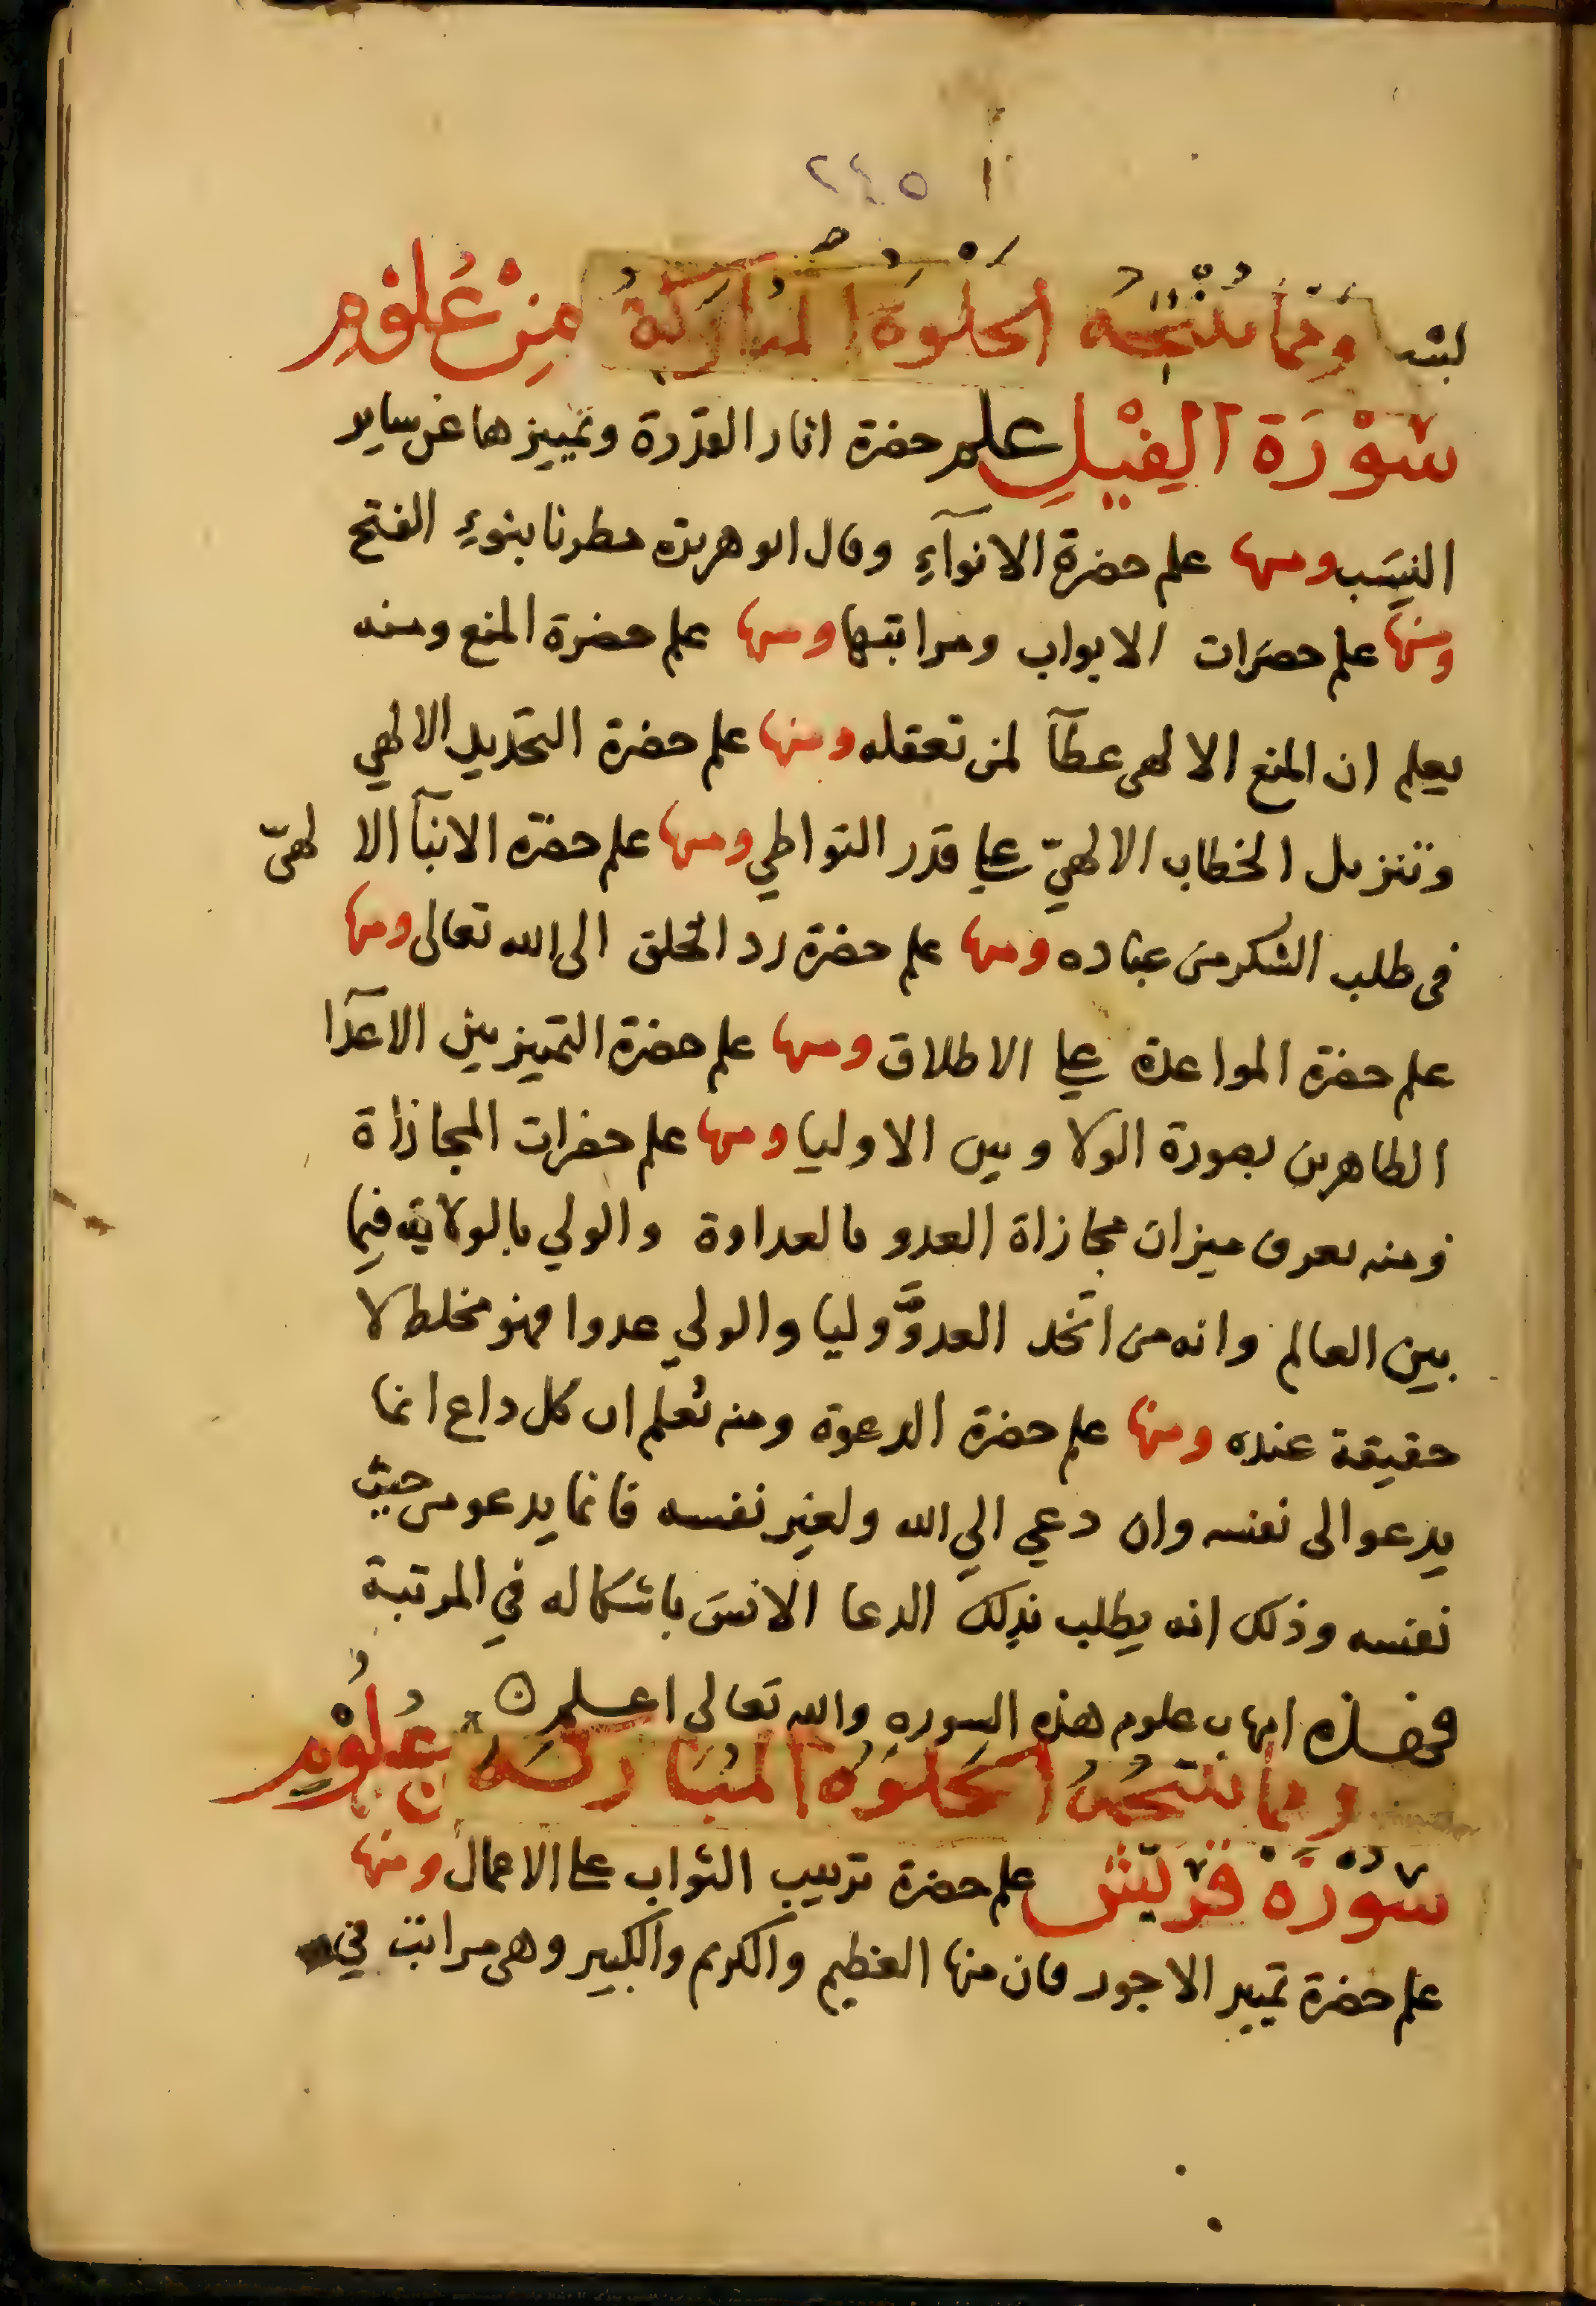 ٢٤٥
لبثه ومما تنتجه الخلوة المباركة من علوم
سورة الفيل علم حضرة اثار القدرة وتمييزها عن ساير
النسب ومنها علم حضرة الانوآء وقال ابو هريرة مطرنا بنوء الفتح
ومنها علم حضرات الابواب ومراتبها ومنها علم حضرة المنع ومنه
يعلم ان المنع الالهى عطآ لمن تعقله ومنها علم حضرة التحديد الالهي
وتنزيل الخطاب الالهيّ على قدر التواطي ومنها علم حضرة الانبآ الالهىّ
فى طلب الشكر من عباده ومنها علم حضرة رد الخلق الى الله تعالى ومنها
علم حضرة المواعدة على الاطلاق ومنها علم حضرة التمييز بين الاعدآ
الظاهرين بصورة الولا وبين الاوليا ومنها علم حضرات المجازاة
ومنه يعرف ميزان مجازاة العدو بالعداوة والولي بالولاية فيما
بين العالم وانه من اتخد العدوَّ وليا والولي عدوا فهو مخلط لا
حقيقة عنده ومنها علم حضرة الدعوة ومنه تعلم ان كل داع انما
يدعو الى نفسه وان دعي الي الله ولغير نفسه فانما يدعو من حيث
نفسه وذلك انه يطلب بذلك الدعا الانس باشكاله في المرتبة
فهذه امهات علوم هذه السوره والله تعالى اعلم
ومما تنتجه الخلوة المباركة من علوم
سورة قريش علم حضرة ترتيب الثواب على الاعمال ومنها
علم حضرة تمييز الاجور فان منها العظيم والكريم والكبير وهى مراتب في